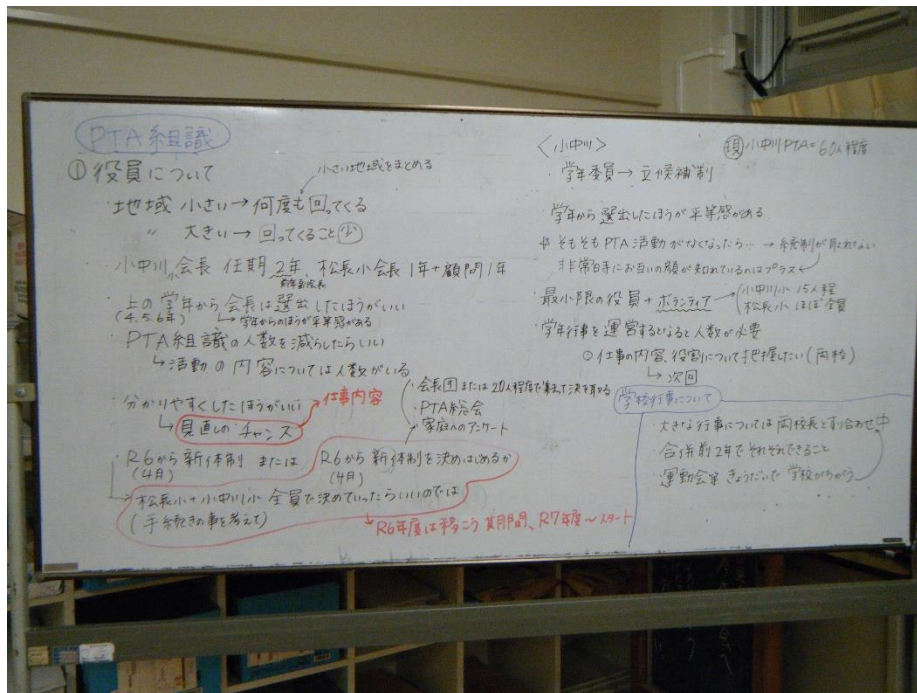 PTA組識
①役員について
小さい地域をまとめる
・地域 小さい→何度も回ってくる
〃 大きい→回ってくること少
・小中川小会長 任期2年、松長小会長1年+顧問1年
・上の学年から会長は選出したほうがいい
(4.5.6年) ↳学年からのほうが平等感がある
・PTA組識の人数を減らしたらいい
↳活動の内容については人数がいる
・分かりやすくしたほうがいい
仕事内容
↳見直しのチャンス
・会長団または20人程度で集まって決を
・PTA総会
・家庭へのアンケート
・R6から新体制 または
(4月)
R6から新体制を決めはじめるか
(4月)
松長小+小中川小 全員で決めていったらいいのでは
(手続きの事を考えて)
→R6年度は移こう期間、R7年度〜スタート
〈小中川〉
現 小中川PTA=60人程度
・学年委員→立候補制
・学年から選出したほうが平等感がある
そもそもPTA活動がなくなったら…→統制が取れない
非常時にお互いの顔が知れているのはプラス
・最小限の役員+ボランティア
小中川小 15人程
松長小 ほぼ全員
・学年行事を運営するとなると人数が必要
○仕事の内容、役割について把握したい(両校)
↳次回
学校行事について
・大きな行事については両校長とすり合わせ中
・合併前2年でそれぞれできること
・運動会等 きょうだいで学校がちがう